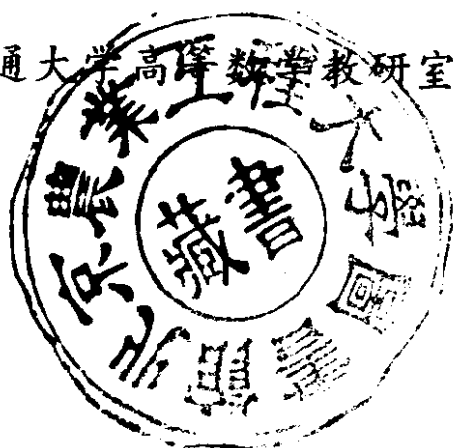 通大学高等数学教研室
北京農業工程大学圖書館
藏書